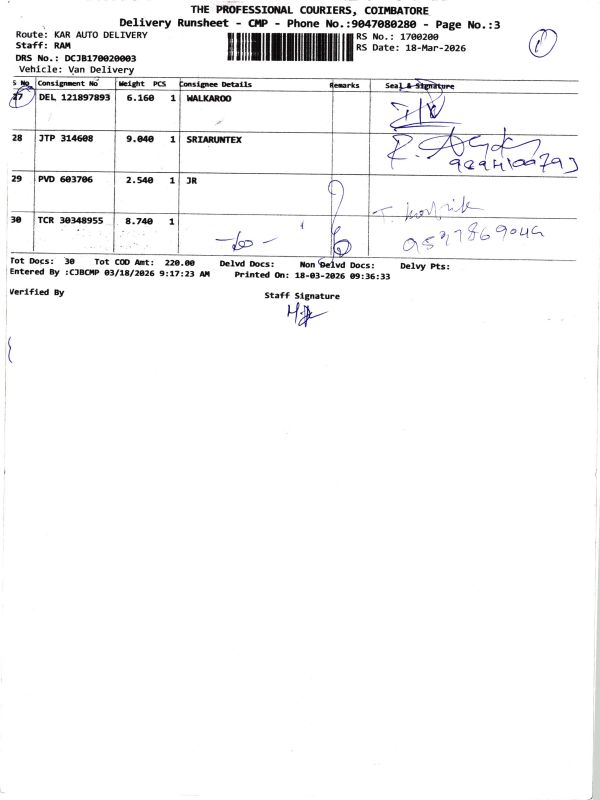 THE PROFESSIONAL COURIERS, COIMBATORE
Delivery Runsheet - CMP - Phone No.:9047080280 - Page No.:3
Route: KAR AUTO DELIVERY
RS No.: 1700200
Staff: RAM
RS Date: 18-Mar-2026
DRS No.: DCJB170020003
Vehicle: Van Delivery
S No Consignment No Weight PCS Consignee Details Remarks Seal & Signature
27 DEL 121897893 6.160 1 WALKAROO
28 JTP 314608 9.040 1 SRIARUNTEX
29 PVD 603706 2.540 1 JR
T. Karthik
30 TCR 30348955 8.740 1
Tot Docs: 30 Tot COD Amt: 220.00 Delvd Docs: Non Delvd Docs: Delvy Pts:
Entered By :CJBCMP 03/18/2026 9:17:23 AM Printed On: 18-03-2026 09:36:33
Verified By
Staff Signature